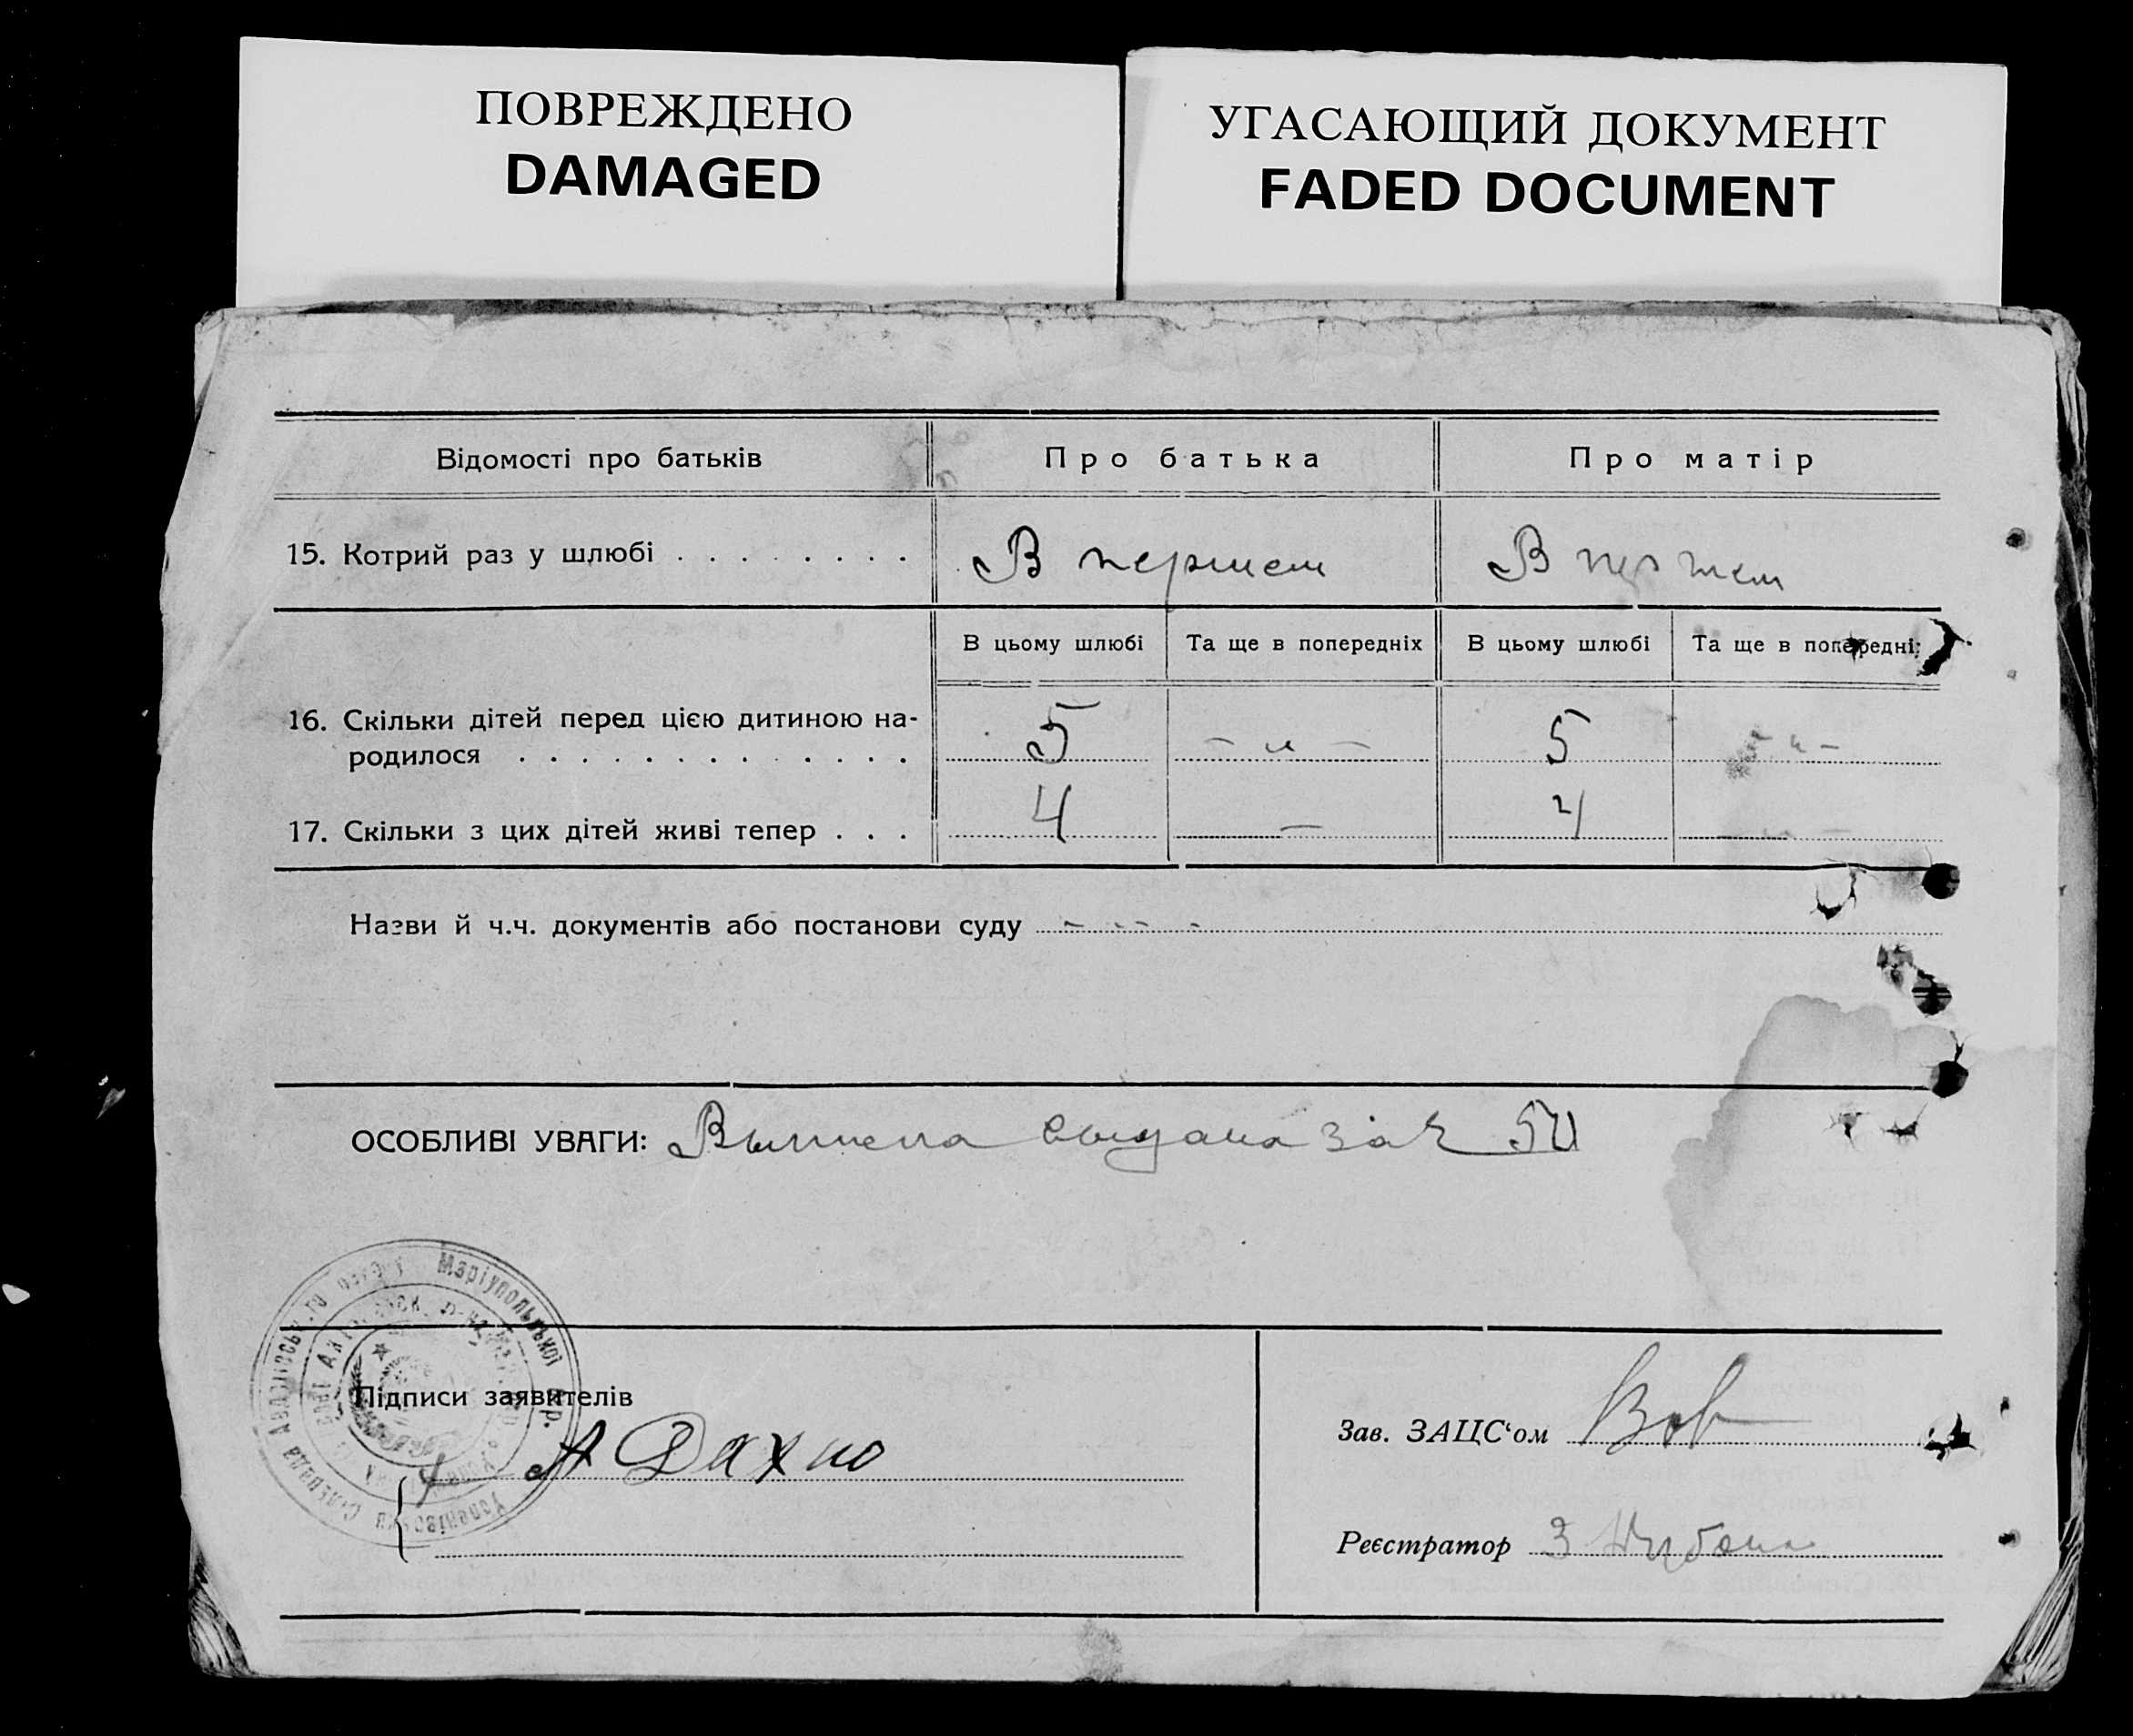 ПОВРЕЖДЕНО
DAMAGED
УГАСАЮЩИЙ ДОКУМЕНТ
FADED DOCUMENT
Відомості про батьків
Про батька
Про матір
15. Котрий раз у шлюбі . . . . . . . .
В першем
В першем
В цьому шлюбі
Та ще в попередніх
В цьому шлюбі
Та ще в попередні
16. Скільки дітей перед цією дитиною на-
родилося . . . . . . . . . . . . .
5
- „ -
5
- „ -
17. Скільки з цих дітей живі тепер . . .
4
—
4
- „ -
Назви й ч.ч. документів або постанови суду - - - -
ОСОБЛИВІ УВАГИ: за
Маріупольської
Підписи заявителів
А Дахно
Зав. ЗАЦС‘ом
Реєстратор З